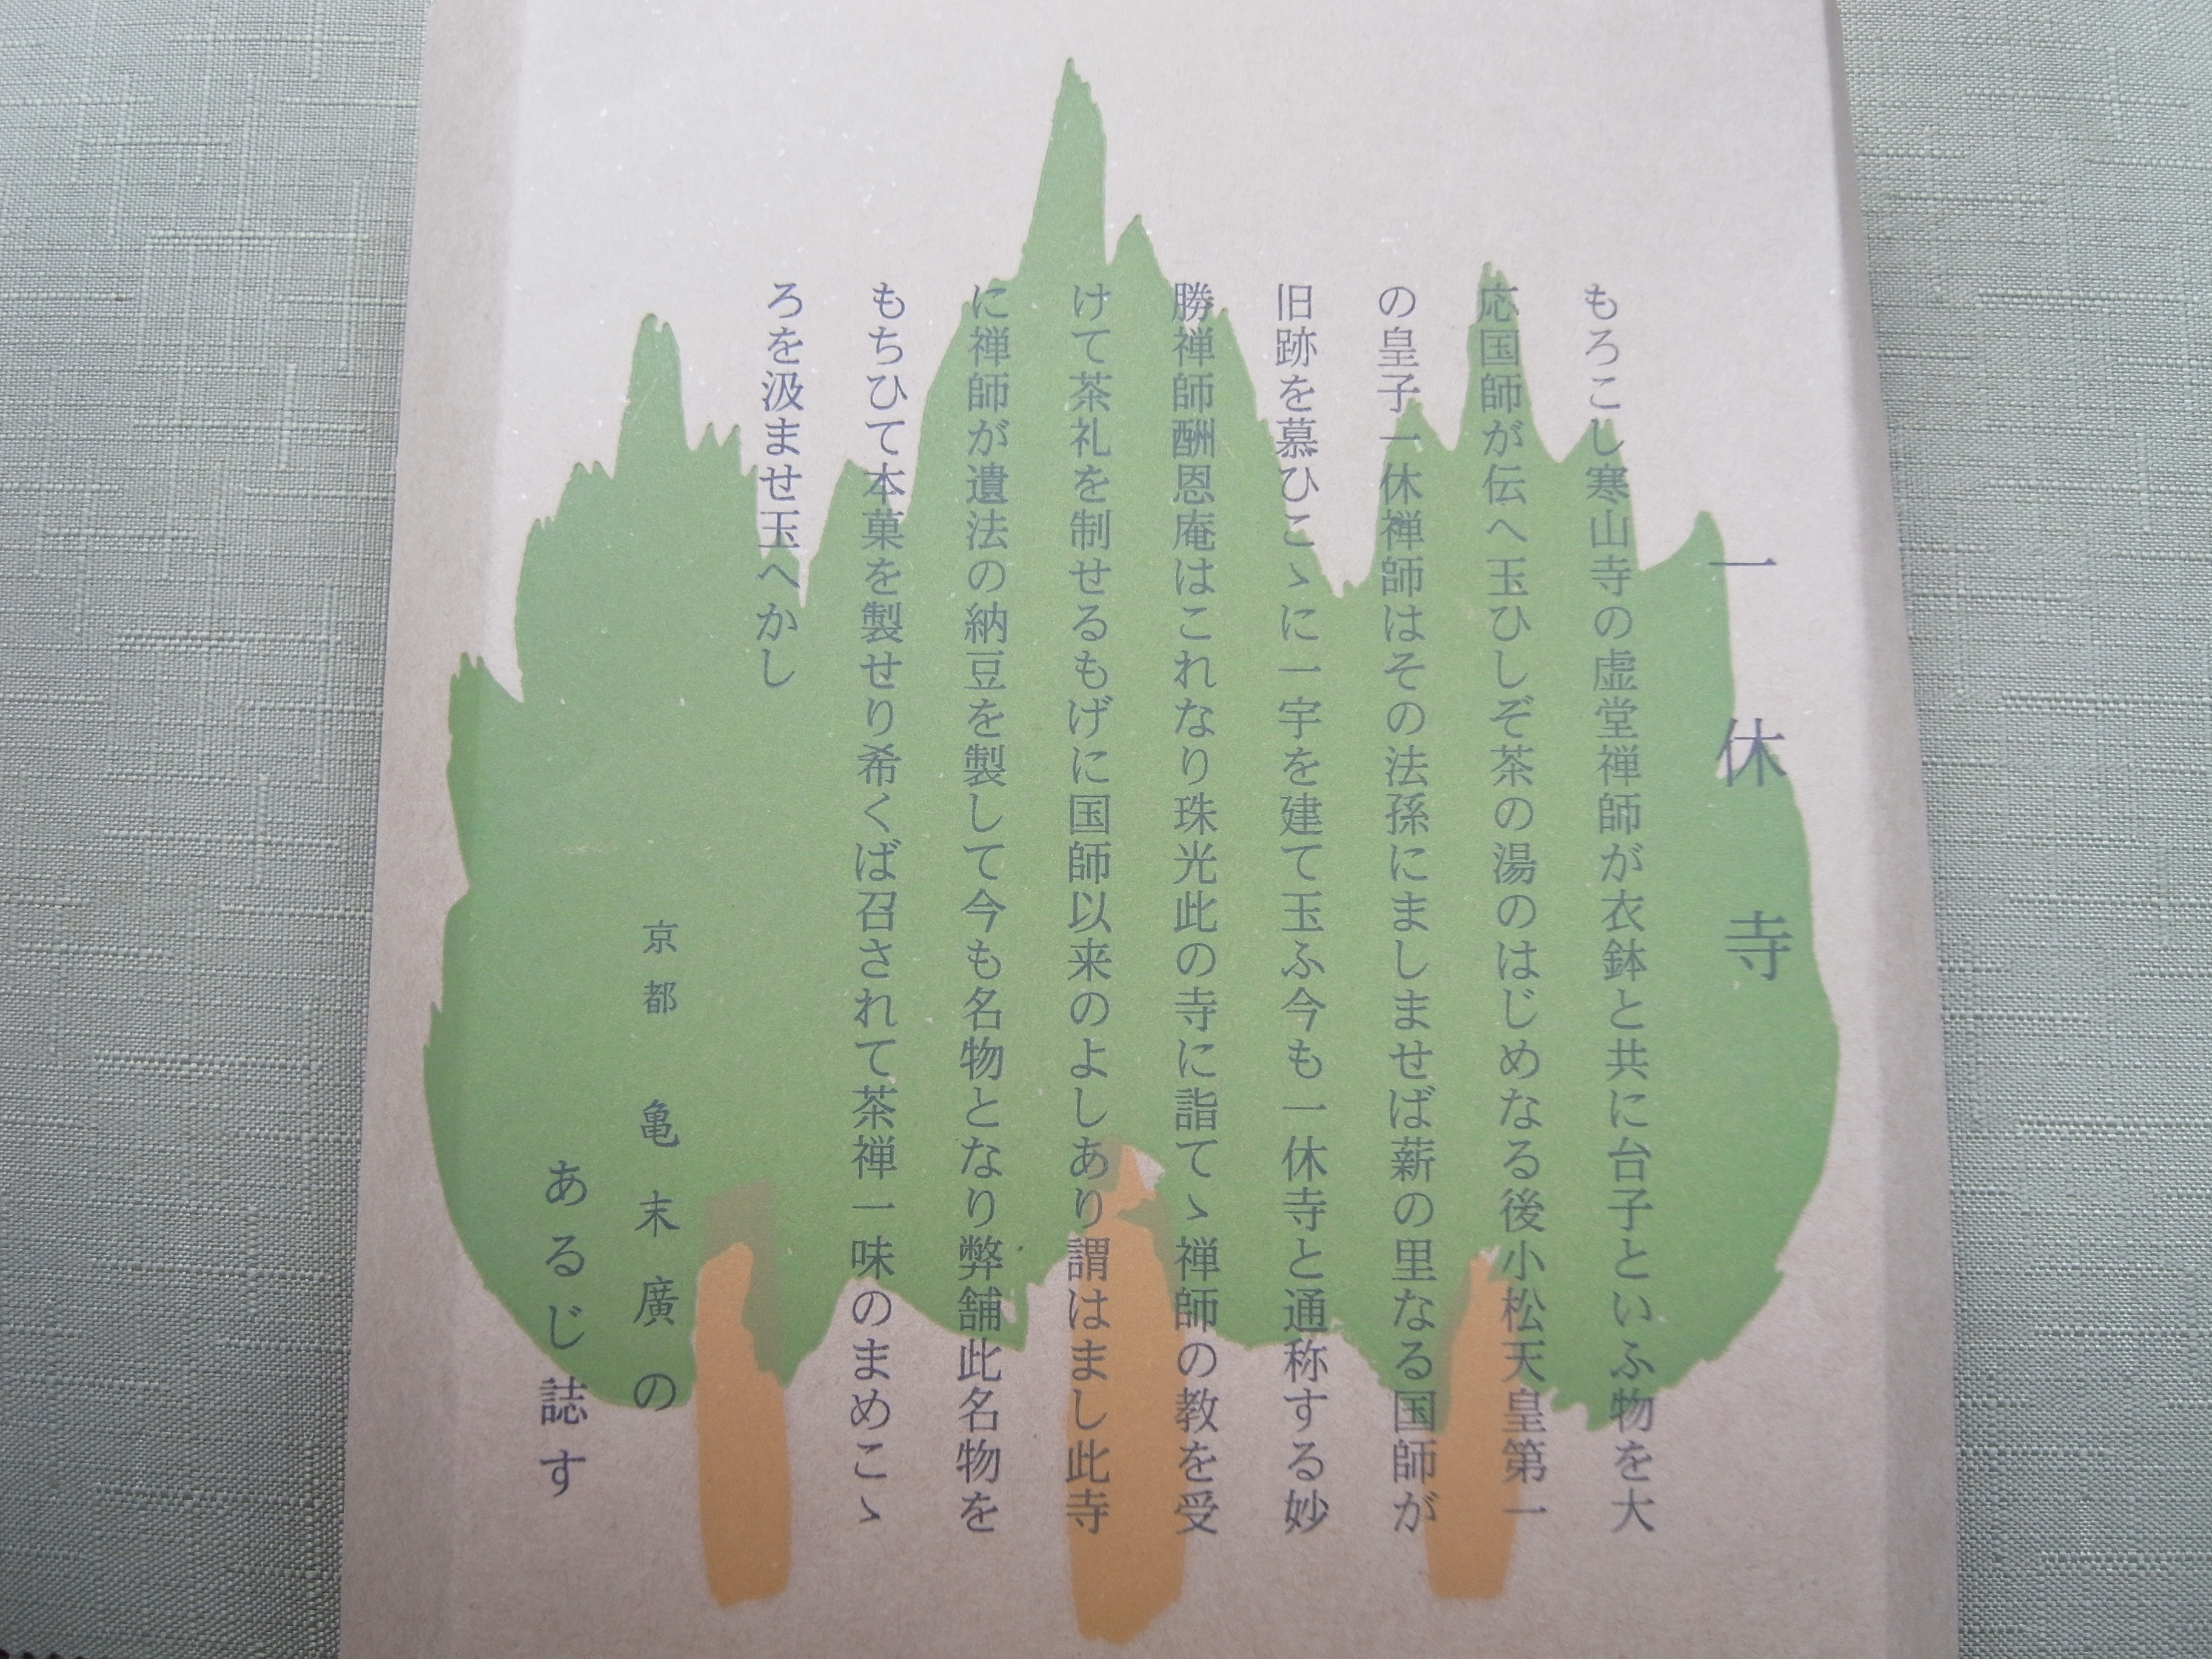 一休寺
もろこし寒山寺の虚堂禅師が衣鉢と共に台子といふ物を大
応国師が伝へ玉ひしぞ茶の湯のはじめなる後小松天皇第一
の皇子一休禅師はその法孫にましませば薪の里なる国師が
旧跡を慕ひこゝに一宇を建て玉ふ今も一休寺と通称する妙
勝禅師酬恩庵はこれなり珠光此の寺に詣てゝ禅師の教を受
けて茶礼を制せるもげに国師以来のよしあり謂はまし此寺
に禅師が遺法の納豆を製して今も名物となり弊舗此名物を
もちひて本菓を製せり希くば召されて茶禅一味のまめこゝ
ろを汲ませ玉へかし
京都 亀末廣の
あるじ誌す